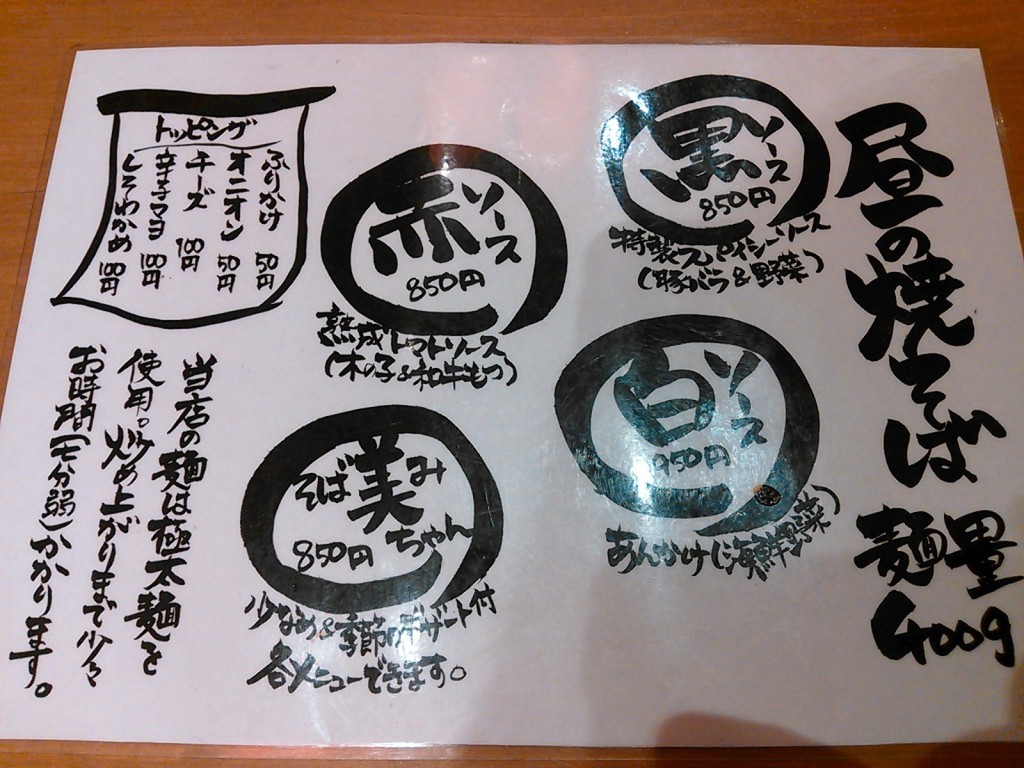 昼の焼そば 麺量 400g
黒ソース
850円
特製スパイシーソース
(豚がら&野菜)
白ソース
950円
あんかけ(海鮮野菜)
赤ソース
850円
熟成トマトソース
(木の子&和牛もつ)
そば美みちゃん
850円
少なめ&季節のデザート付
各メニューできます。
トッピング
ふりかけ 50円
オニオン 50円
チーズ 100円
辛子マヨ 100円
しそわかめ 100円
当店の麺は極太麺を
使用。炒め上がりまで少々
お時間(七分弱)かかります。